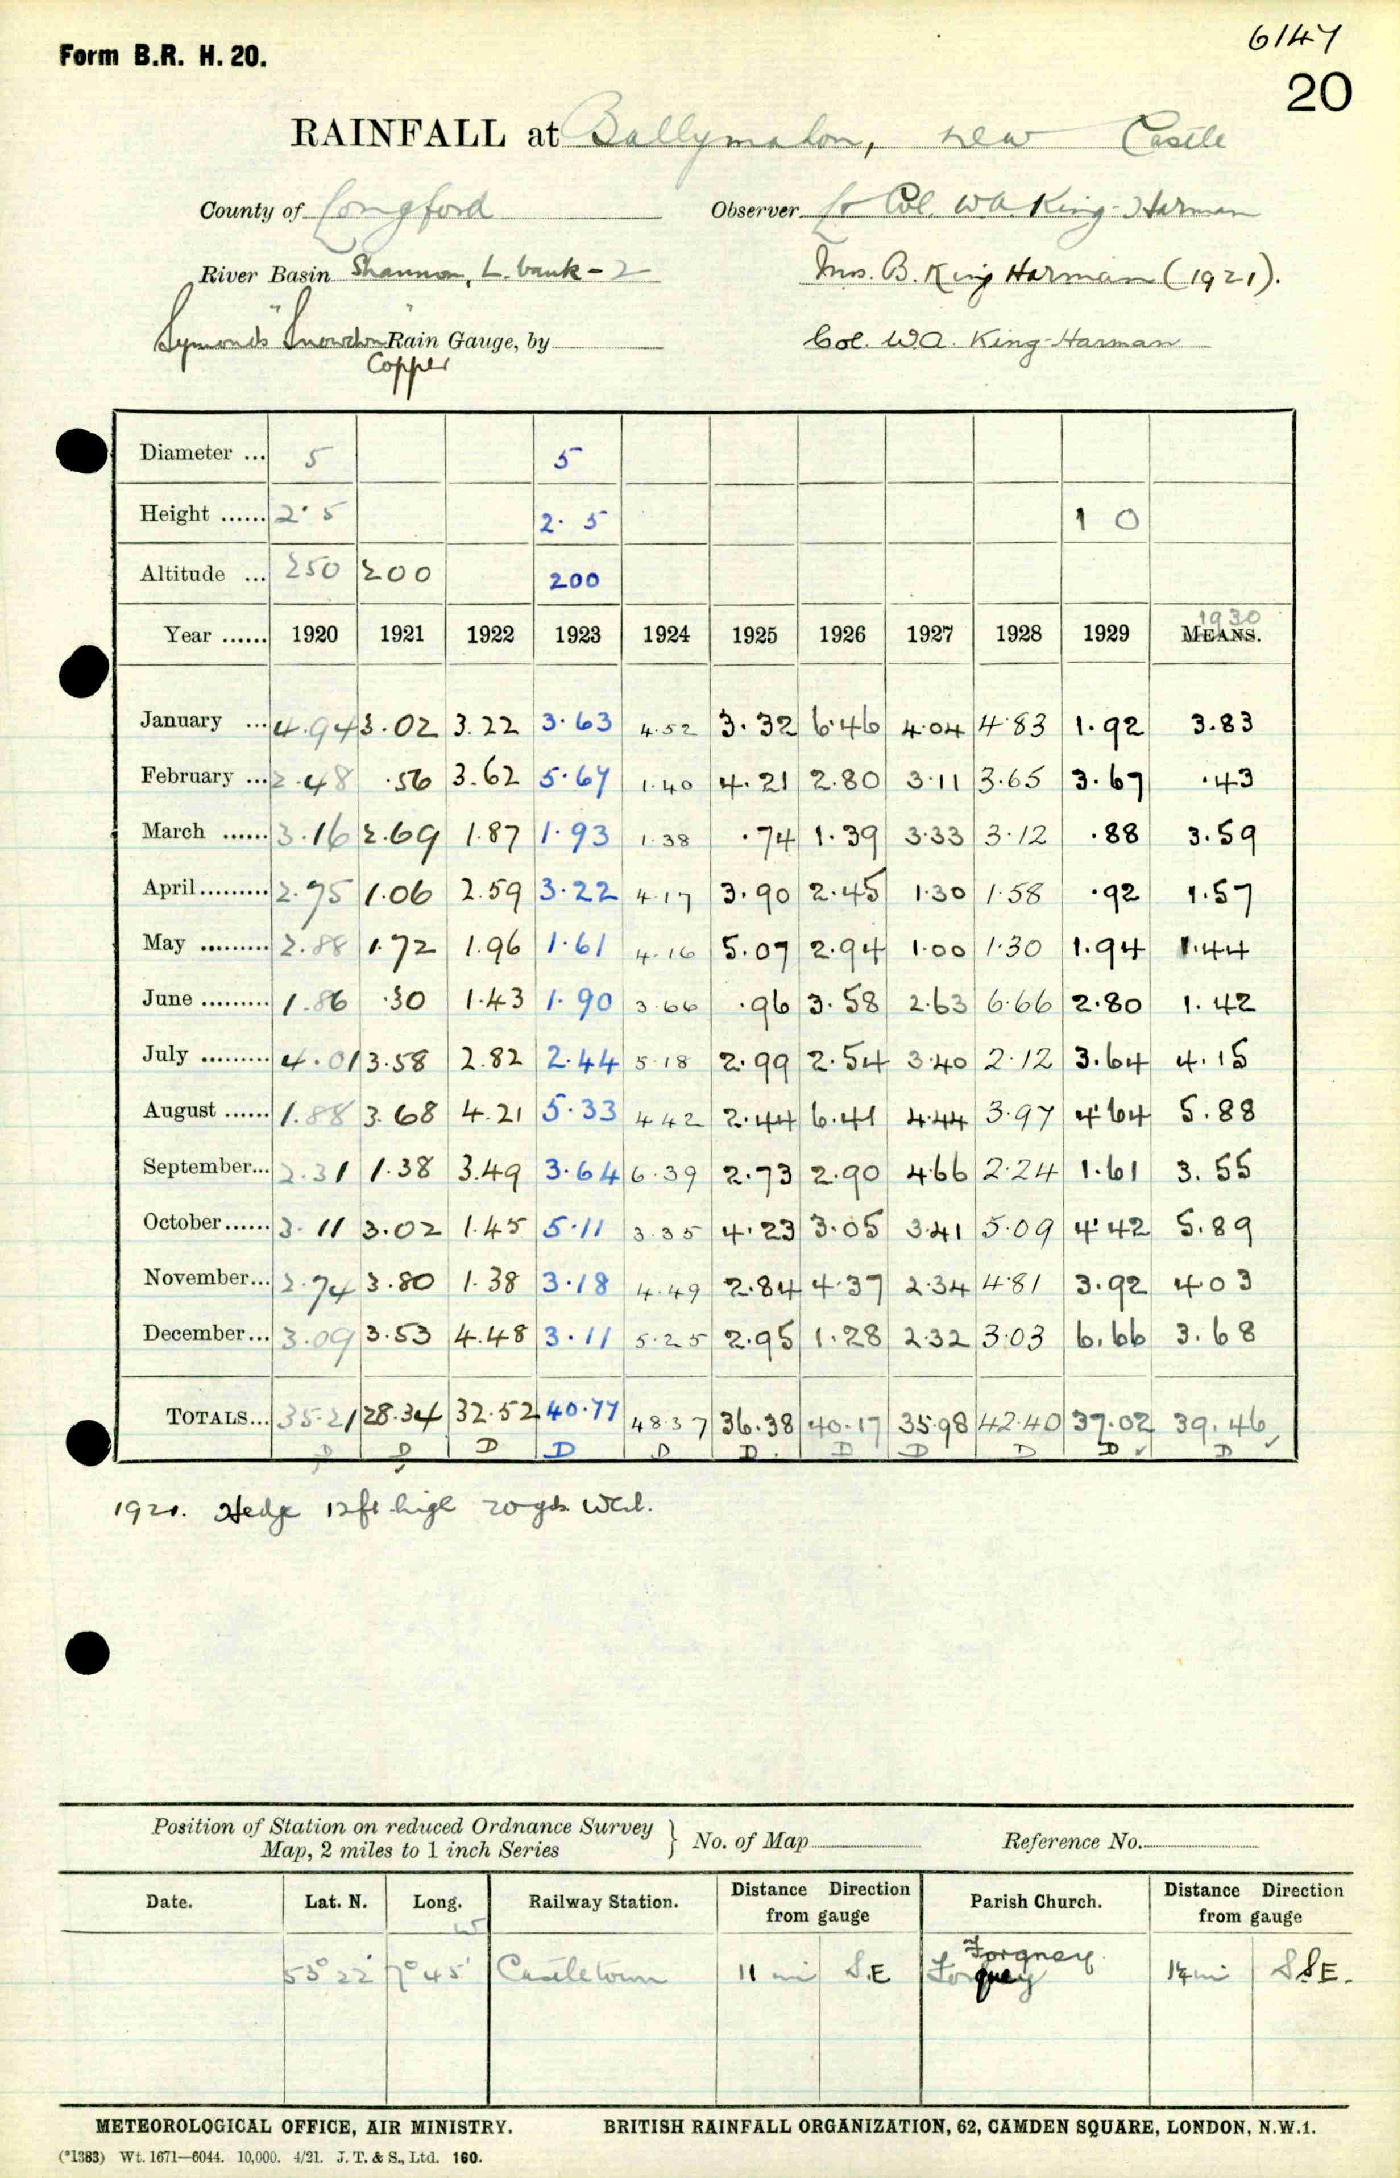 6147
Form B.R. H. 20.
20
RAINFALL at Ballymahon, New Castle
County of Longford Observer Lt Col. W.A. King-Harman
River Basin Shannon, L. bank - 2 Mrs. B. King Harman (1921).
Symonds "Snowdon" Rain Gauge, by Col. W.A. King-Harman
Copper
Diameter ... 5 5
Height ...... 2· 5 2· 5 1 0
Altitude ... 250 200 200
1930
Year ...... 1920 1921 1922 1923 1924 1925 1926 1927 1928 1929 MEANS.
January ... 4.94 3.02 3.22 3.63 4.52 3.32 6.46 4.04 4.83 1.92 3.83
February ... 2.48 .56 3.62 5.67 1.40 4.21 2.80 3.11 3.65 3.67 .43
March ...... 3.16 2.69 1.87 1.93 1.38 .74 1.39 3.33 3.12 .88 3.59
April......... 2.75 1.06 2.59 3.22 4.17 3.90 2.45 1.30 1.58 .92 1.57
May ......... 2.88 1.72 1.96 1.61 4.16 5.07 2.94 1.00 1.30 1.94 1.44
June ......... 1.86 .30 1.43 1.90 3.66 .96 3.58 2.63 6.66 2.80 1.42
July ......... 4.01 3.58 2.82 2.44 5.18 2.99 2.54 3.40 2.12 3.64 4.15
August ...... 1.88 3.68 4.21 5.33 4.42 2.44 6.41 4.44 3.97 4.64 5.88
September... 2.31 1.38 3.49 3.64 6.39 2.73 2.90 4.66 2.24 1.61 3.55
October...... 3.11 3.02 1.45 5.11 3.35 4.23 3.05 3.41 5.09 4.42 5.89
November... 2.74 3.80 1.38 3.18 4.49 2.84 4.37 2.34 4.81 3.92 4.03
December... 3.09 3.53 4.48 3.11 5.25 2.95 1.28 2.32 3.03 6.66 3.68
TOTALS... 35.21 28.34 32.52 40.77 48.37 36.38 40.17 35.98 42.40 37.02 39.46
D D D D D D D D D D ✓ D ✓
1921. Hedge 12ft high 20 yds West.
Position of Station on reduced Ordnance Survey
Map, 2 miles to 1 inch Series } No. of Map Reference No.
Date. Lat. N. Long. W Railway Station. Distance Direction from gauge Parish Church. Distance Direction from gauge
Forgney
53° 22' 7° 45' Castletown 11 mi S.E Forgney 1¼ mi S.S.E.
METEOROLOGICAL OFFICE, AIR MINISTRY. BRITISH RAINFALL ORGANIZATION, 62, CAMDEN SQUARE, LONDON, N.W.1.
(*1383) Wt. 1671—6044. 10,000. 4/21. J. T. & S., Ltd. 160.